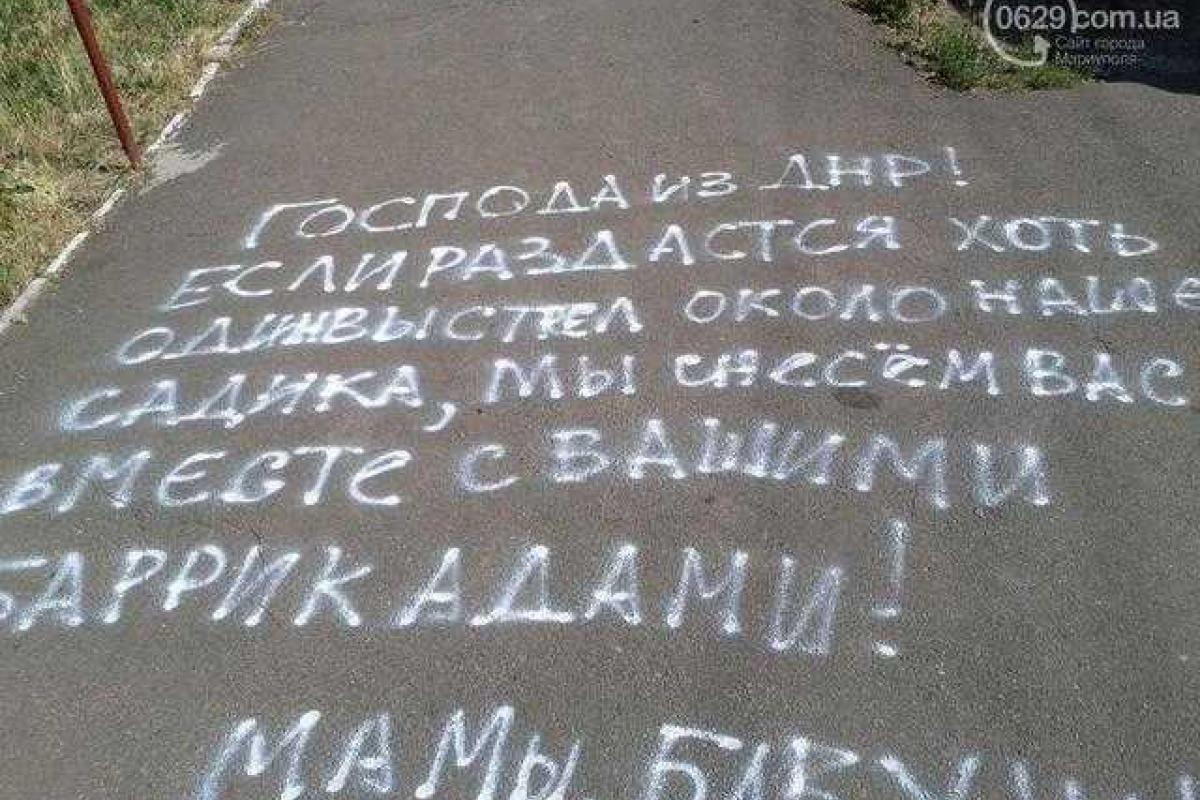 0629.com.ua
Сайт города
Мариуполя
ГОСПОДА ИЗ ДНР!
ЕСЛИ РАЗДАСТСЯ ХОТЬ
ОДИН ВЫСТРЕЛ ОКОЛО НАШЕ
САДИКА, МЫ СНЕСЁМ ВАС
ВМЕСТЕ С ВАШИМИ
БАРРИКАДАМИ!
МАМЫ,